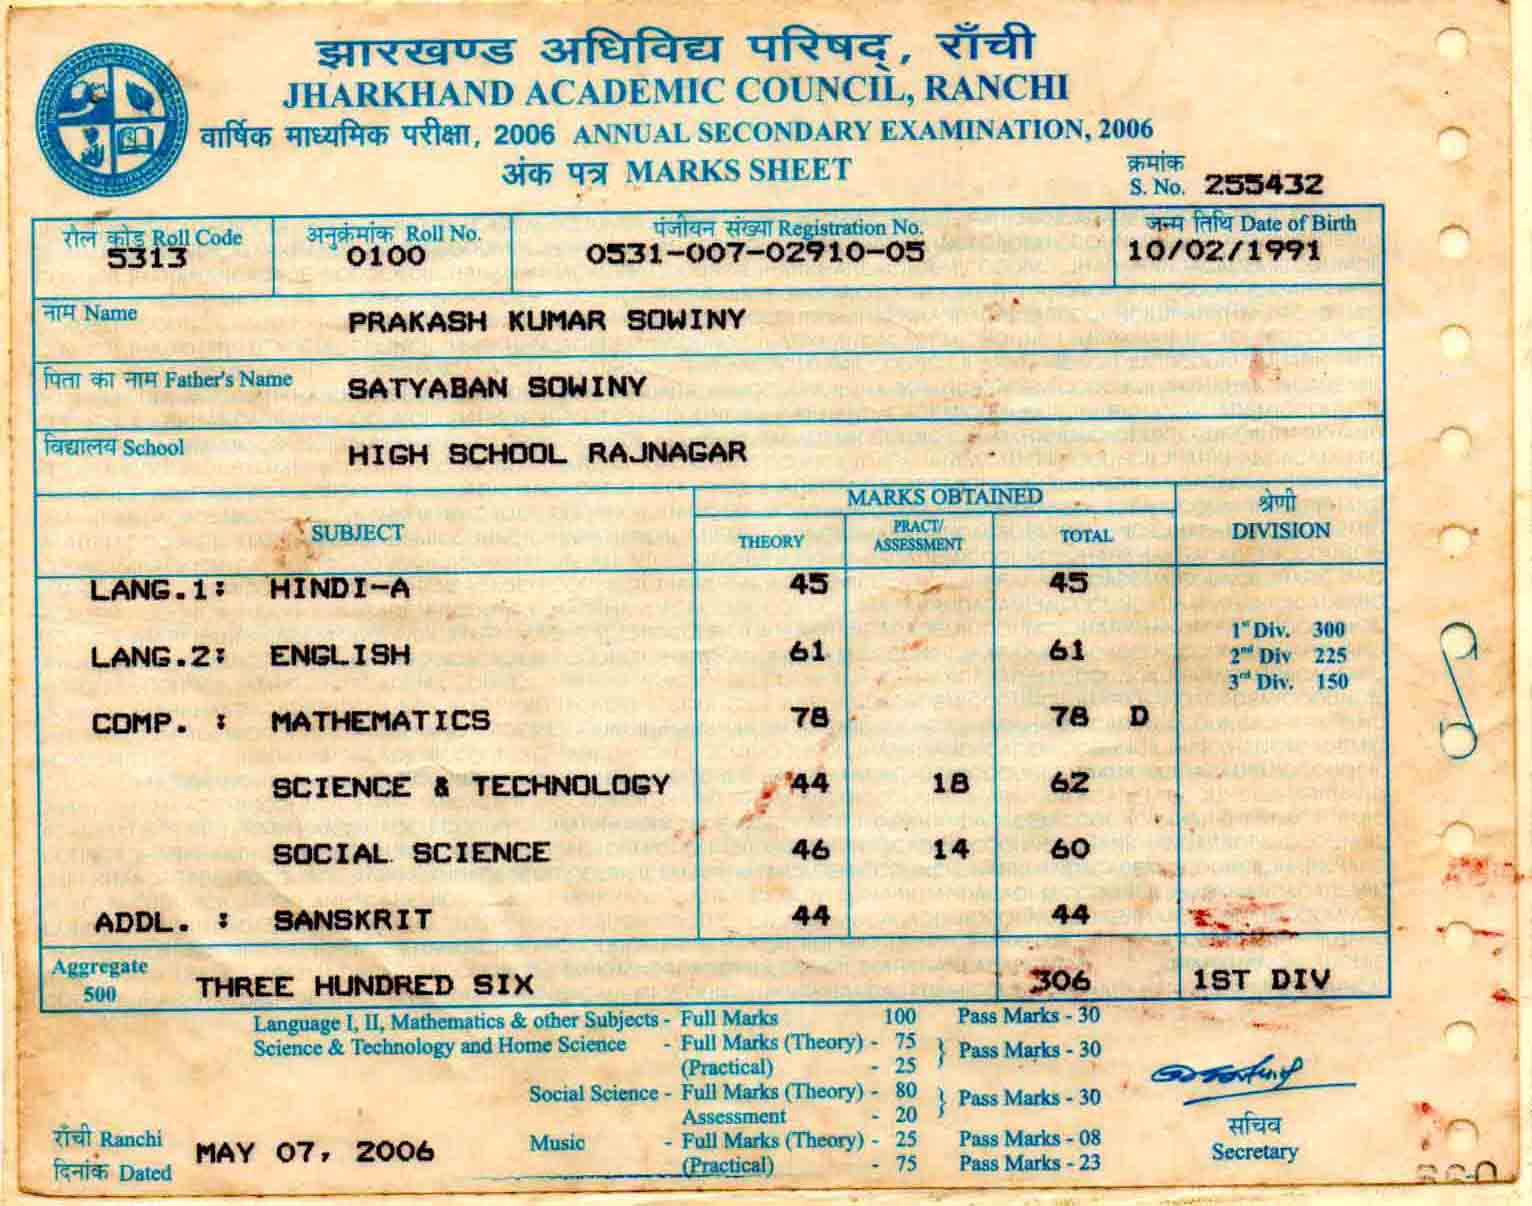 झारखण्ड अधिविद्य परिषद्, राँची
JHARKHAND ACADEMIC COUNCIL, RANCHI
वार्षिक माध्यमिक परीक्षा, 2006 ANNUAL SECONDARY EXAMINATION, 2006
अंक पत्र MARKS SHEET
क्रमांक
S. No. 255432
रौल कोड Roll Code
5313
अनुक्रमांक Roll No.
0100
पंजीयन संख्या Registration No.
0531-007-02910-05
जन्म तिथि Date of Birth
10/02/1991
नाम Name PRAKASH KUMAR SOWINY
पिता का नाम Father's Name SATYABAN SOWINY
विद्यालय School HIGH SCHOOL RAJNAGAR
SUBJECT
MARKS OBTAINED
THEORY
PRACT/
ASSESSMENT
TOTAL
श्रेणी
DIVISION
LANG.1: HINDI-A 45 45
LANG.2: ENGLISH 61 61
COMP. : MATHEMATICS 78 78 D
SCIENCE & TECHNOLOGY 44 18 62
SOCIAL SCIENCE 46 14 60
ADDL. : SANSKRIT 44 44
1st Div. 300
2nd Div 225
3rd Div. 150
Aggregate
500
THREE HUNDRED SIX 306 1ST DIV
Language I, II, Mathematics & other Subjects - Full Marks 100 Pass Marks - 30
Science & Technology and Home Science - Full Marks (Theory) - 75
(Practical) - 25 } Pass Marks - 30
Social Science - Full Marks (Theory) - 80
Assessment - 20 } Pass Marks - 30
Music - Full Marks (Theory) - 25 Pass Marks - 08
(Practical) - 75 Pass Marks - 23
राँची Ranchi
दिनांक Dated
MAY 07, 2006
सचिव
Secretary